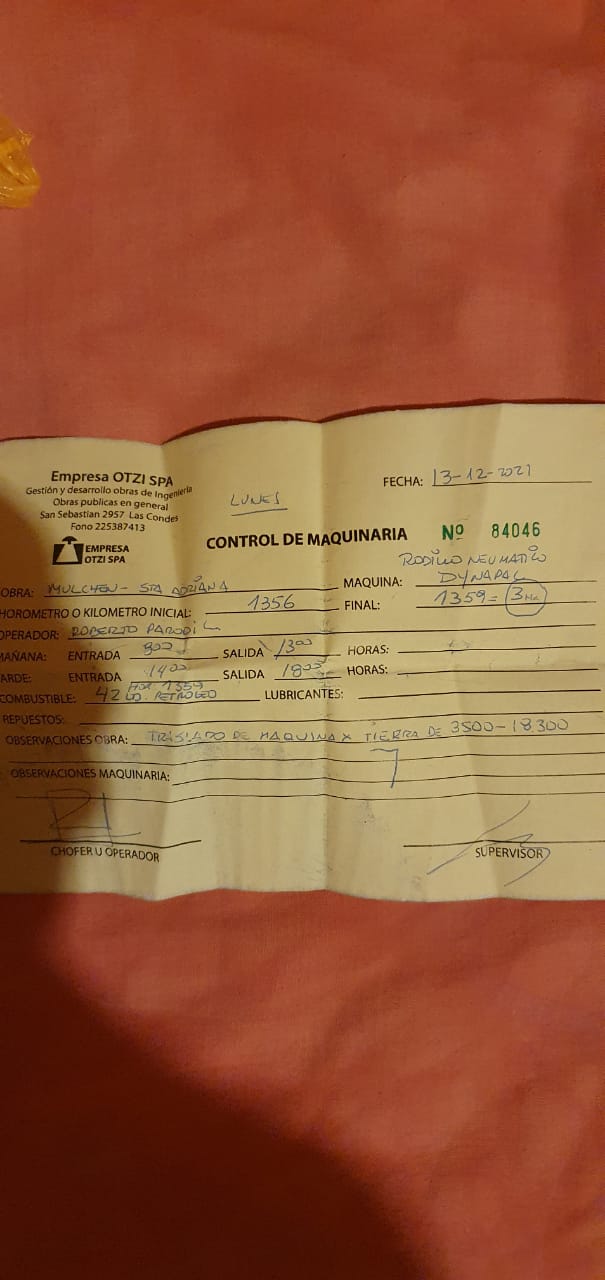 Empresa OTZI SPA
Gestión y desarrollo obras de Ingenieria
Obras publicas en general
San Sebastian 2957 Las Condes
Fono 225387413
EMPRESA
OTZI SPA
LUNES
FECHA: 13-12-2021
CONTROL DE MAQUINARIA Nº 84046
OBRA: MULCHEN - STA ADRIANA
MAQUINA: RODILLO NEUMATICO
DYNAPAC
HOROMETRO O KILOMETRO INICIAL: 1356
FINAL: 1359 = 3
OPERADOR: ROBERTO PARODI
MAÑANA: ENTRADA 800 SALIDA 1300 HORAS:
TARDE: ENTRADA 1400 SALIDA 1800 HORAS:
HOR 1359
COMBUSTIBLE: 42 PETROLEO LUBRICANTES:
REPUESTOS:
OBSERVACIONES OBRA: TRASLADO DE MAQUINA X TIERRA DE 3500-18.300
OBSERVACIONES MAQUINARIA:
CHOFER U OPERADOR
SUPERVISOR